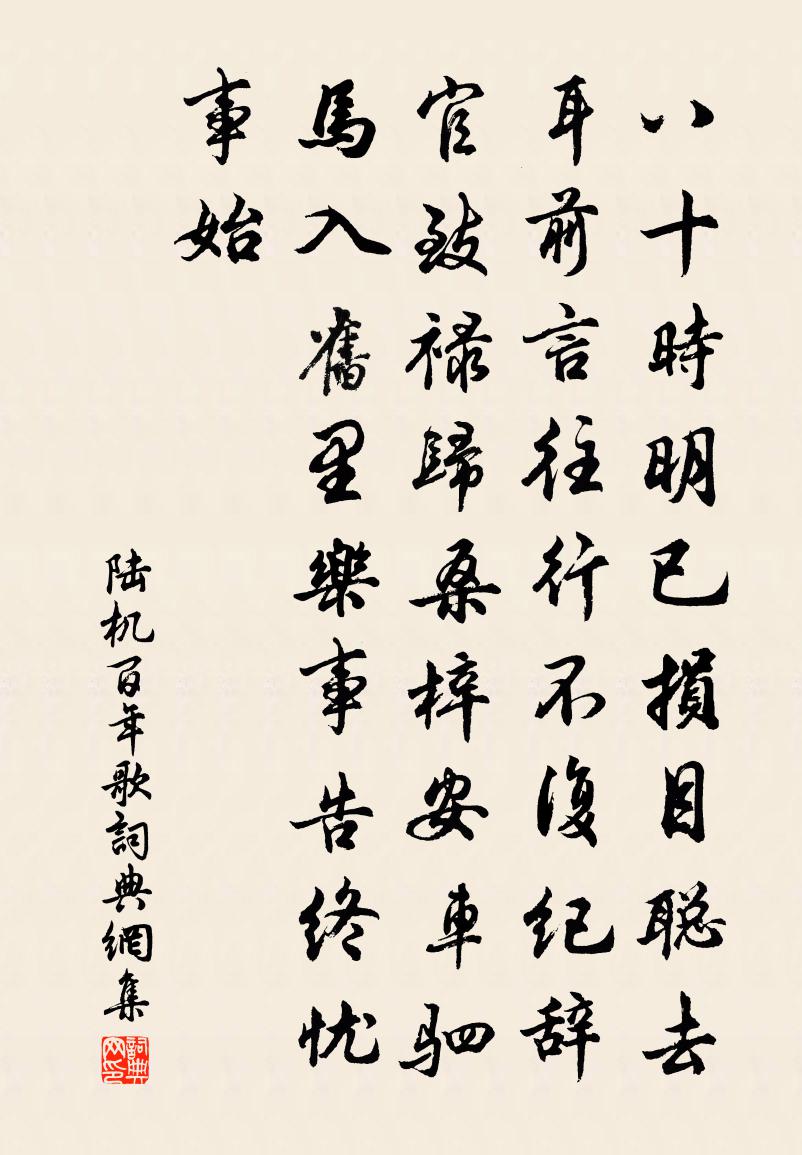 八十時明已損目聪去
耳前言往行不復纪辞
官致禄歸桑梓安車驷
馬入舊里樂事告终忧
事始
陆机百年歌詞典網集
詞典网印